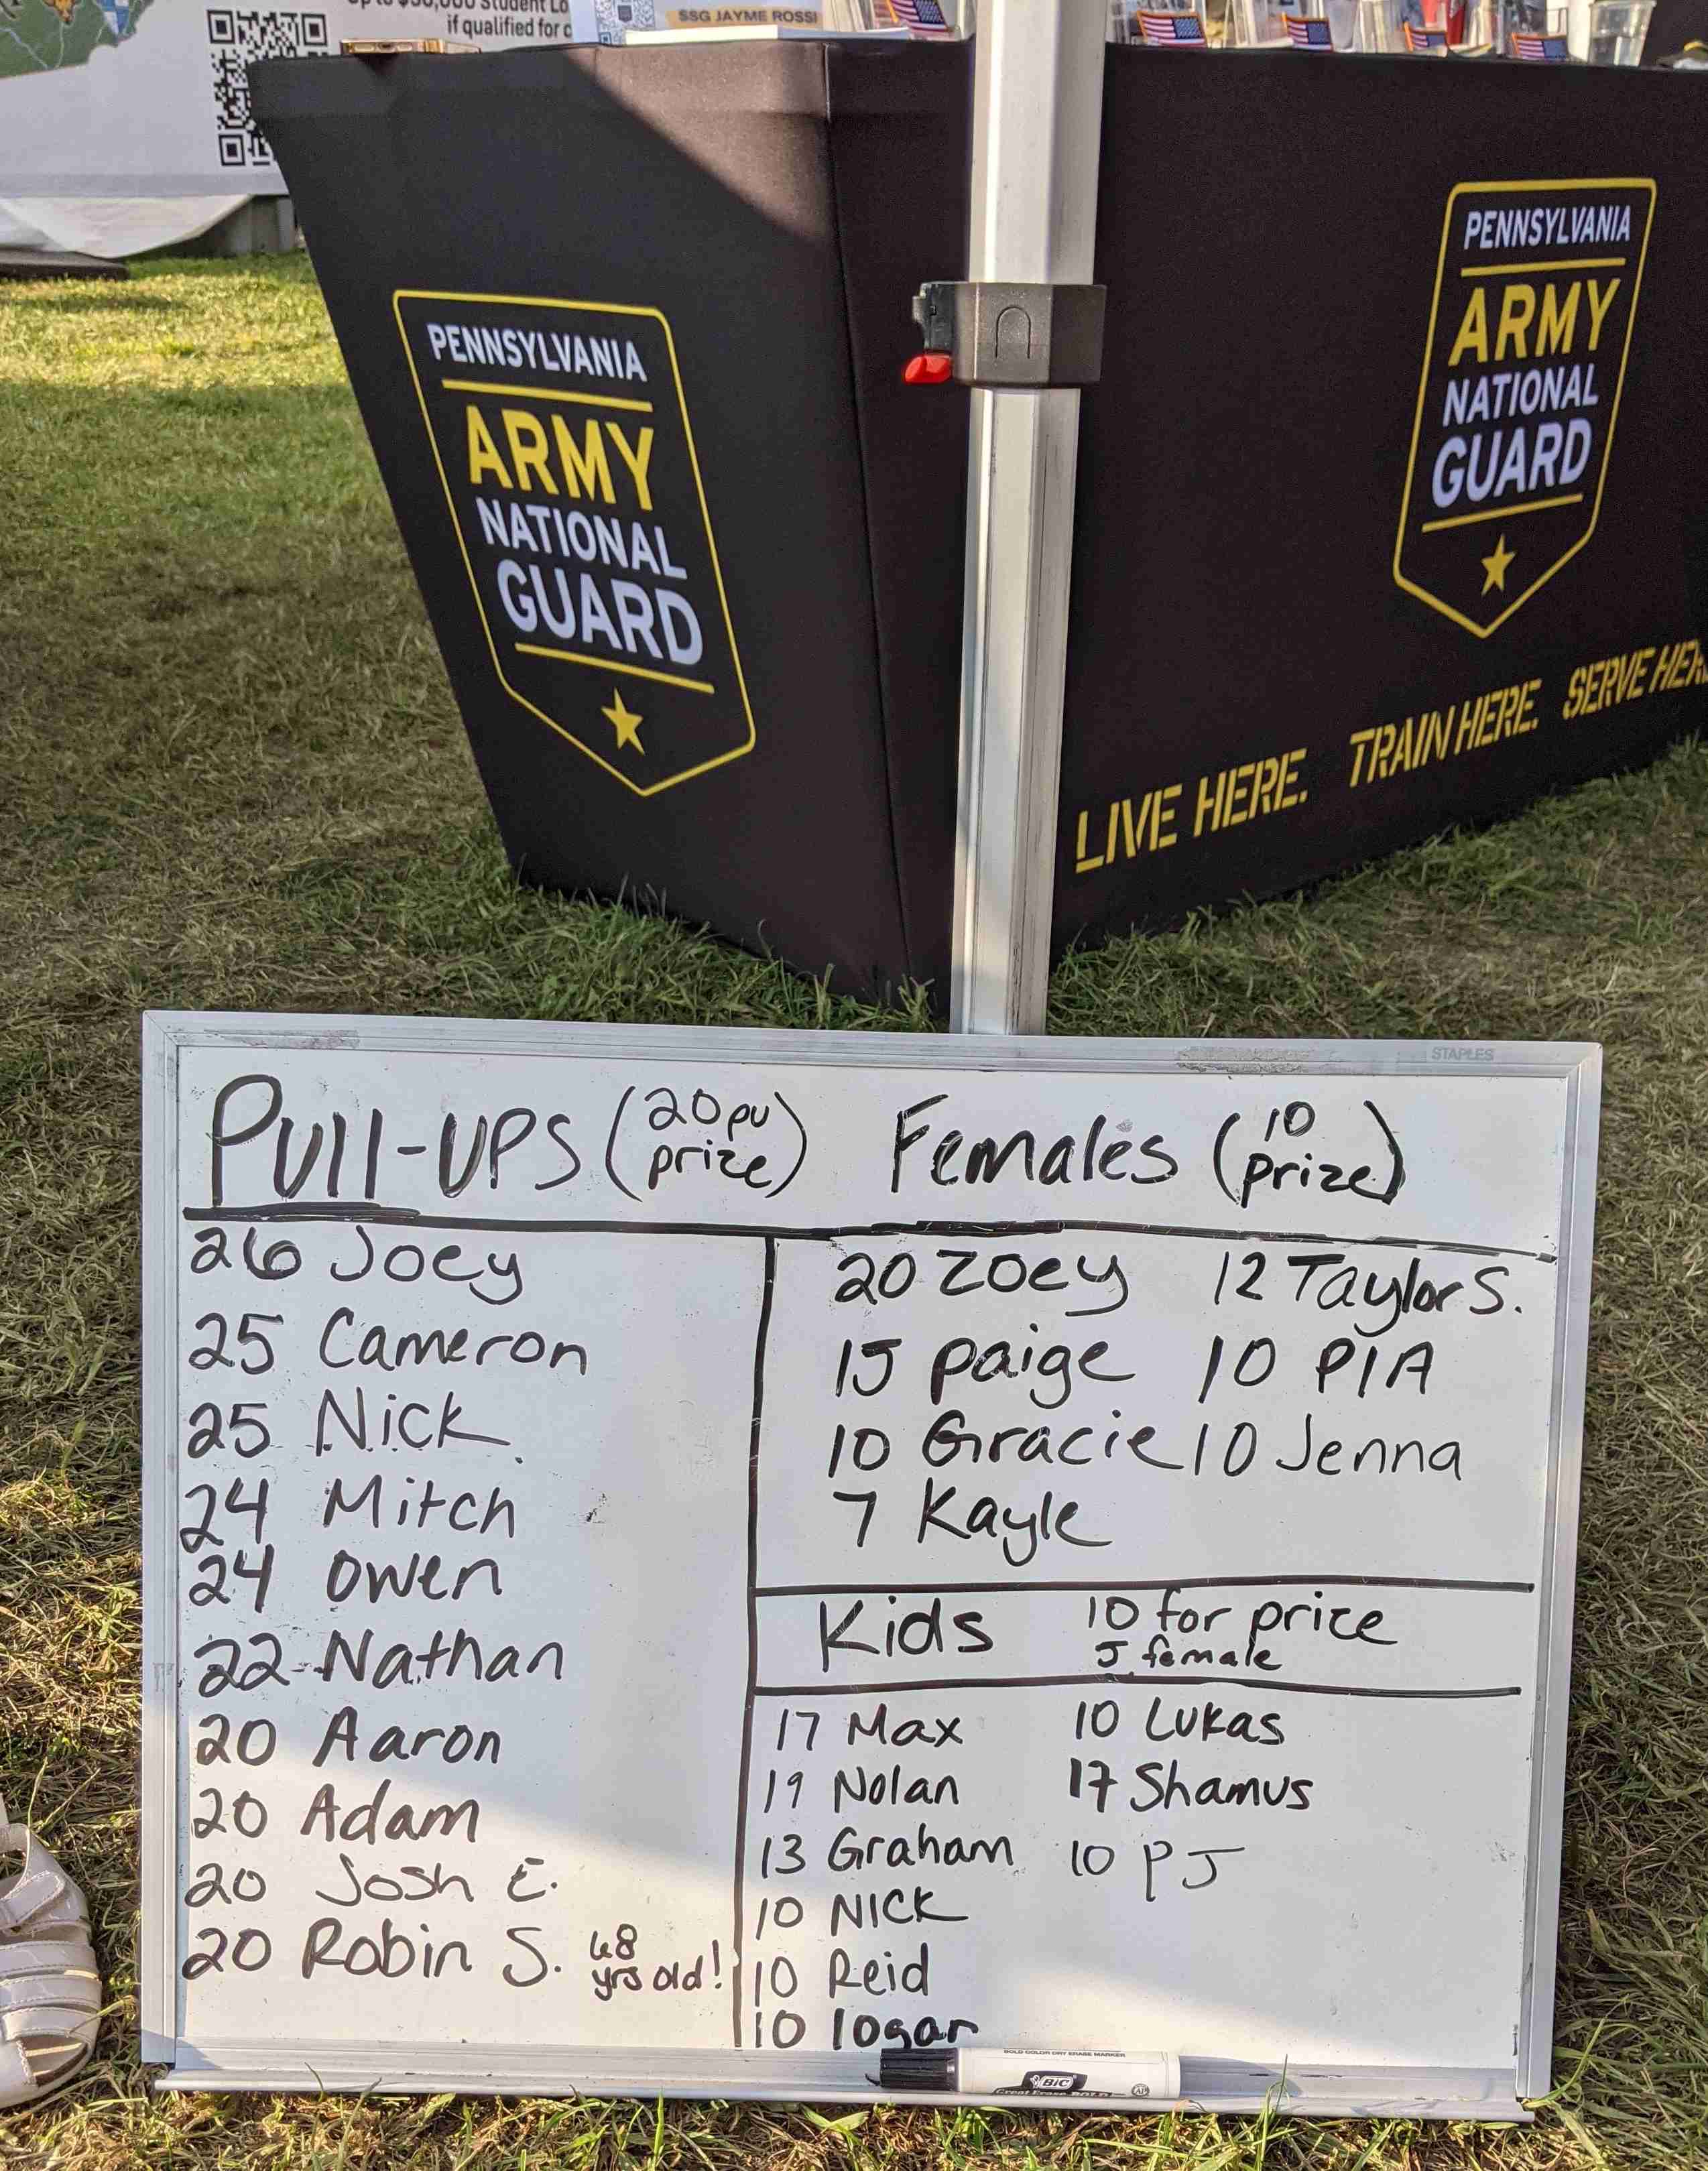 Up to $50,000 Student Lo
if qualified for
SSG JAYME ROSSI
PENNSYLVANIA
ARMY
NATIONAL
GUARD
PENNSYLVANIA
ARMY
NATIONAL
GUARD
LIVE HERE. TRAIN HERE. SERVE HER
STAPLES
Pull-UPS (20 pu prize) Females (10 prize)
26 Joey
25 Cameron
25 Nick
24 Mitch
24 Owen
22 Nathan
20 Aaron
20 Adam
20 Josh E.
20 Robin S. 48 yrs old!
20 Zoey 12 Taylor S.
15 paige 10 PIA
10 Gracie 10 Jenna
7 Kayle
Kids 10 for price
5 female
17 Max 10 Lukas
19 Nolan 17 Shamus
13 Graham 10 PJ
10 NICK
10 Reid
10 logan
BOLD COLOR DRY ERASE MARKER
BIC
Great Erase BOLD